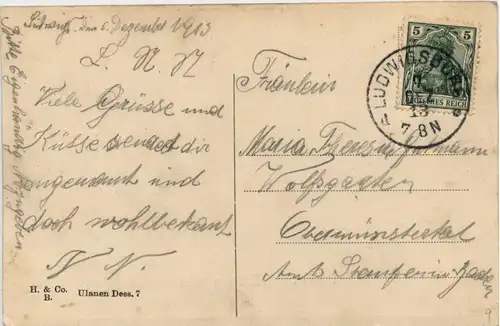 Ludwigsb. den 5. Dezember 1913
L. N. N.
Viele Grüsse und
Küsse sendet dir
ungenannt und
doch wohlbekant
N. N.
Bitte Eigenhändig
H. & Co.
B.
Ulanen Dess. 7
5 5
DEUTSCHES REICH
LUDWIGSBURG
13
7-8N
Fräulein
Maria Theresia
Wolfsgarten
Obermünstertal
Amt Staufen in Baden